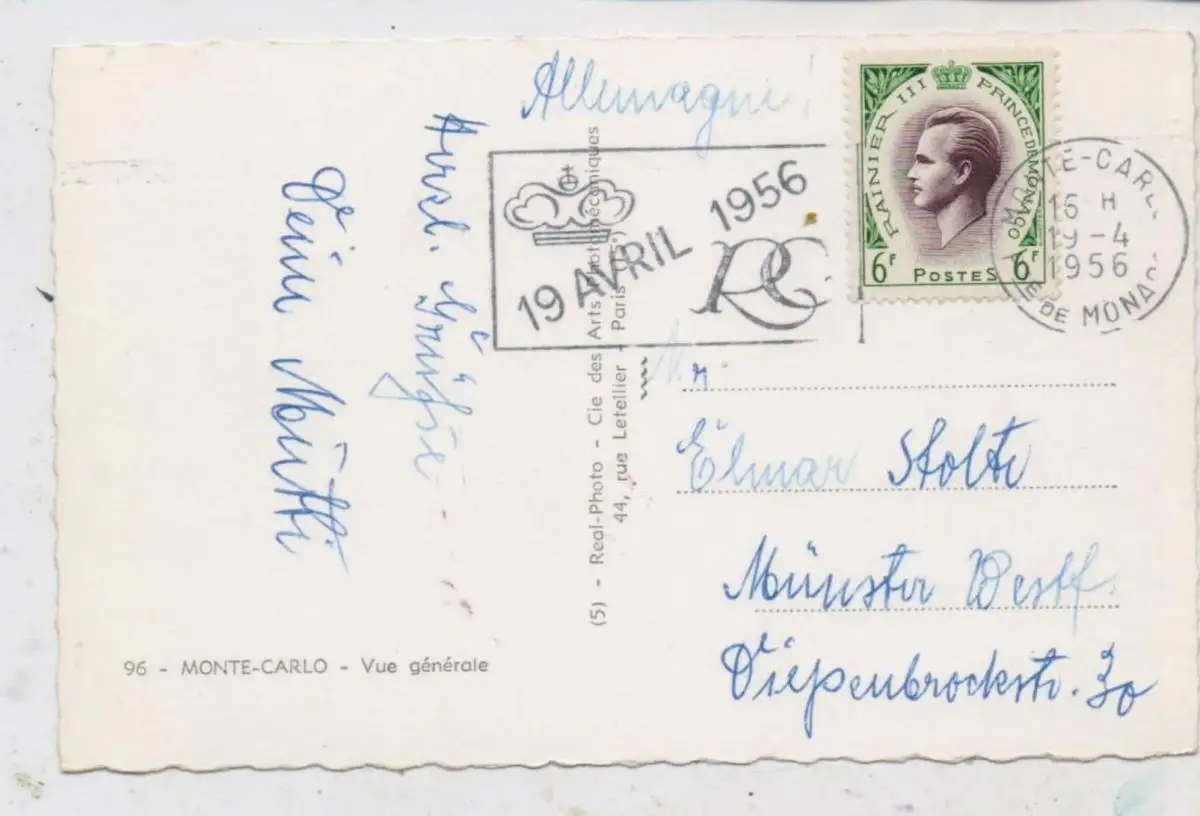 Allemagne!
Herzl. Grüße
Deine Mutti
96 - MONTE-CARLO - Vue générale
(5) - Real-Photo - Cie des Arts Photomécaniques
44, rue Letellier - Paris (15e)
19 AVRIL 1956
RG
RAINIER III PRINCE DE MONACO
6F POSTES 6F
MONTE-CARLO
16 H
19-4
1956
PTE DE MONACO
Elmar Stolte
Münster Westf.
Diepenbrockstr. 30